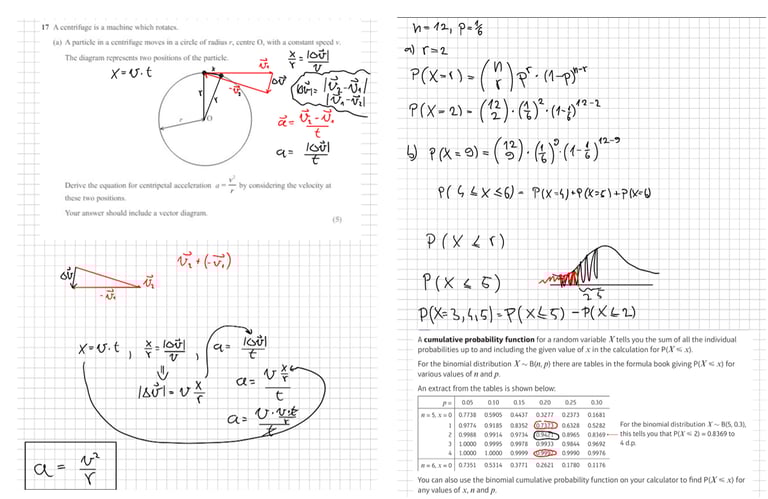 17 A centrifuge is a machine which rotates.
(a) A particle in a centrifuge moves in a circle of radius r, centre O, with a constant speed v.
The diagram represents two positions of the particle.
x = v · t
x
v⃗₁
-v⃗₂
Δv⃗
r
r
r
O
x/r = |Δv⃗|/v
|Δv⃗| = |v⃗₂-v⃗₁|
|v⃗₁-v⃗₂|
a⃗ = (v⃗₂ - v⃗₁)/t
a = |Δv⃗|/t
Derive the equation for centripetal acceleration a = v²/r by considering the velocity at
these two positions.
Your answer should include a vector diagram.
(5)
v⃗₂ + (-v⃗₁)
Δv⃗
v⃗₂
-v⃗₁
x = v · t , x/r = |Δv⃗|/v , a = |Δv⃗|/t
|Δv⃗| = v x/r
a = v x/r / t
a = v · v·t/r / t
a = v²/r
n = 12, p = 1/6
a) r = 2
P(X=r) = (n r) pʳ · (1-p)ⁿ⁻ʳ
P(X=2) = (12 2) · (1/6)² · (1-1/6)¹²⁻²
b) P(X=9) = (12 9) · (1/6)⁹ · (1-1/6)¹²⁻⁹
P(4 ≤ X ≤ 6) = P(X=4)+P(X=5)+P(X=6)
P(X ≤ r)
P(X ≤ 5)
2 5
P(X=3,4,5) = P(X≤5) - P(X≤2)
A cumulative probability function for a random variable X tells you the sum of all the individual
probabilities up to and including the given value of x in the calculation for P(X ≤ x).
For the binomial distribution X ~ B(n, p) there are tables in the formula book giving P(X ≤ x) for
various values of n and p.
An extract from the tables is shown below:
p = 0.05 0.10 0.15 0.20 0.25 0.30
n = 5, x = 0 0.7738 0.5905 0.4437 0.3277 0.2373 0.1681
1 0.9774 0.9185 0.8352 0.7373 0.6328 0.5282
2 0.9988 0.9914 0.9734 0.9421 0.8965 0.8369
3 1.0000 0.9995 0.9978 0.9933 0.9844 0.9692
4 1.0000 1.0000 0.9999 0.9997 0.9990 0.9976
n = 6, x = 0 0.7351 0.5314 0.3771 0.2621 0.1780 0.1176
For the binomial distribution X ~ B(5, 0.3),
this tells you that P(X ≤ 2) = 0.8369 to
4 d.p.
You can also use the binomial cumulative probability function on your calculator to find P(X ≤ x) for
any values of x, n and p.